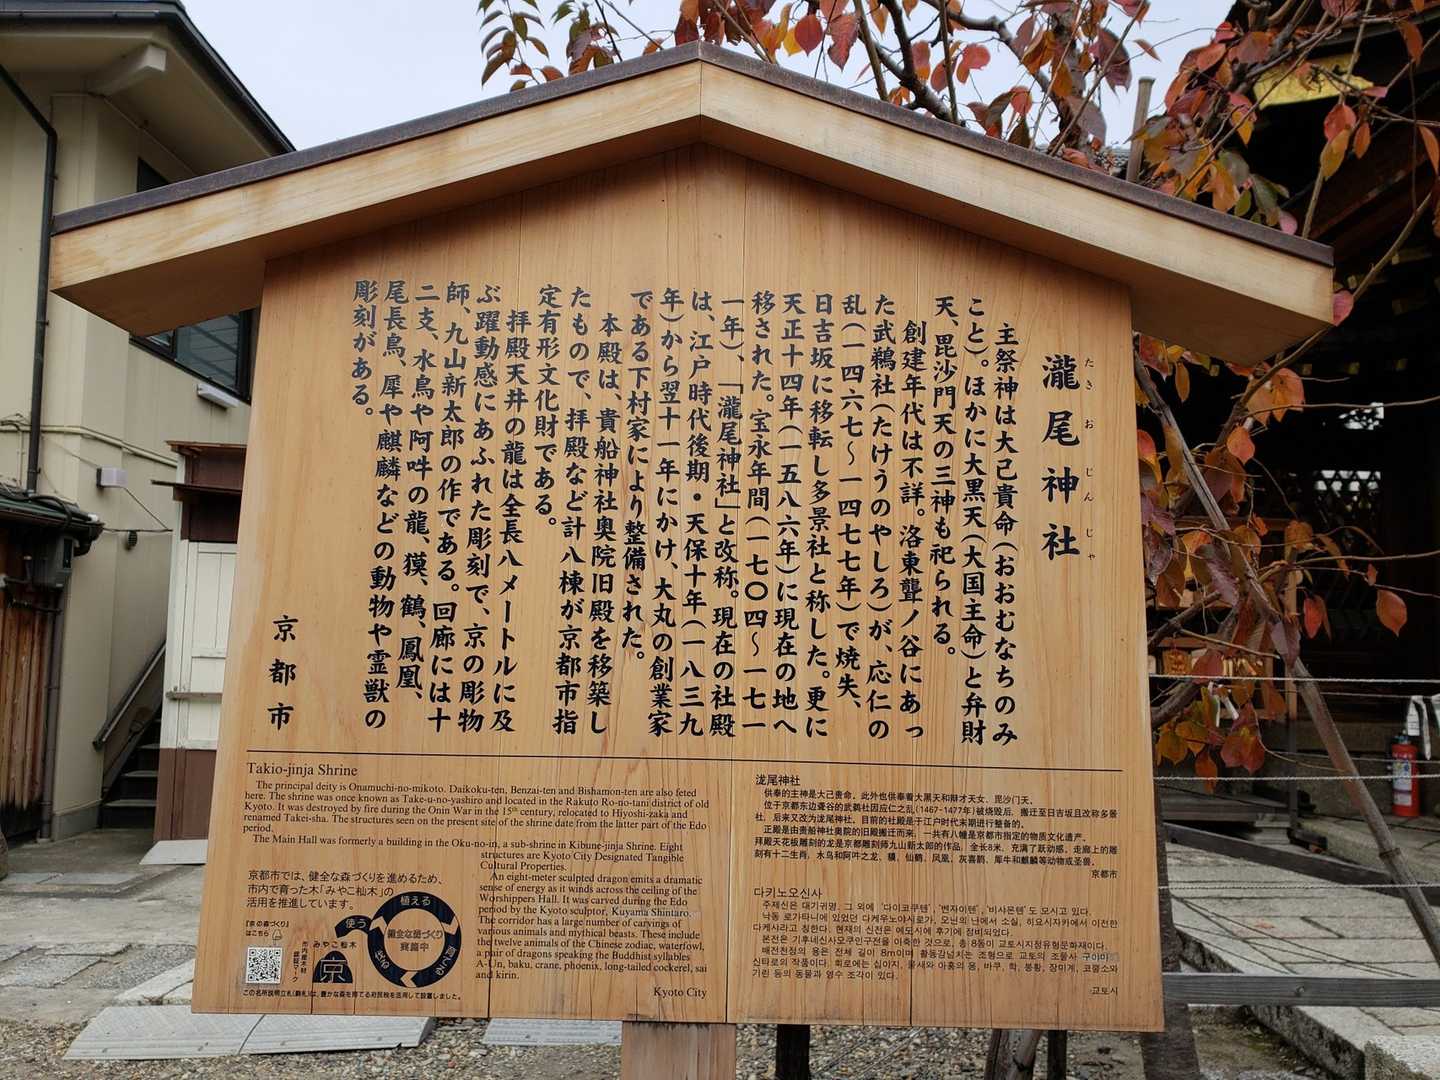 瀧尾神社
たきおじんじゃ
主祭神は大己貴命(おおむなちのみ
こと)。ほかに大黒天(大国主命)と弁財
天、毘沙門天の三神も祀られる。
創建年代は不詳。洛東聾ノ谷にあっ
た武鵜社(たけうのやしろ)が、応仁の
乱(一四六七〜一四七七年)で焼失、
日吉坂に移転し多景社と称した。更に
天正十四年(一五八六年)に現在の地へ
移された。宝永年間(一七〇四〜一七一
一年)、「瀧尾神社」と改称。現在の社殿
は、江戸時代後期・天保十年(一八三九
年)から翌十一年にかけ、大丸の創業家
である下村家により整備された。
本殿は、貴船神社奥院旧殿を移築し
たもので、拝殿など計八棟が京都市指
定有形文化財である。
拝殿天井の龍は全長八メートルに及
ぶ躍動感にあふれた彫刻で、京の彫物
師、九山新太郎の作である。回廊には十
二支、水鳥や阿吽の龍、獏、鶴、鳳凰、
尾長鳥、犀や麒麟などの動物や霊獣の
彫刻がある。
京都市
Takio-jinja Shrine
The principal deity is Onamuchi-no-mikoto. Daikoku-ten, Benzai-ten and Bishamon-ten are also feted
here. The shrine was once known as Take-u-no-yashiro and located in the Rakuto Ro-no-tani district of old
Kyoto. It was destroyed by fire during the Onin War in the 15th century, relocated to Hiyoshi-zaka and
renamed Takei-sha. The structures seen on the present site of the shrine date from the latter part of the Edo
period.
The Main Hall was formerly a building in the Oku-no-in, a sub-shrine in Kibune-jinja Shrine. Eight
structures are Kyoto City Designated Tangible
Cultural Properties.
An eight-meter sculpted dragon emits a dramatic
sense of energy as it winds across the ceiling of the
Worshippers Hall. It was carved during the Edo
period by the Kyoto sculptor, Kuyama Shintaro.
The corridor has a large number of carvings of
various animals and mythical beasts. These include
the twelve animals of the Chinese zodiac, waterfowl,
a pair of dragons speaking the Buddhist syllables
A-Un, baku, crane, phoenix, long-tailed cockerel, sai
and kirin.
Kyoto City
京都市では、健全な森づくりを進めるため、
市内で育った木「みやこ杣木」の
活用を推進しています。
「京の森づくり」
はこちら
市内産木材
みやこ杣木
京
植える
育てる
伐る
使う
健全な森づくり
実施中
この名所説明立札(駒札)は、豊かな森を育てる府民税を活用して設置しました。
泷尾神社
供奉的主神是大己贵命。此外也供奉着大黑天和辩才天女、毘沙门天。
位于京都东边聋谷的武鹈社因应仁之乱(1467-1477年)被烧毁后，搬迁至日吉坂且改称多景
社，后来又改为泷尾神社。目前的社殿是于江户时代末期进行整备的。
正殿是由贵船神社奥院的旧殿搬迁而来，一共有八幢是京都市指定的物质文化遗产。
拜殿天花板雕刻的龙是京都雕刻师九山新太郎的作品，全长8米，充满了跃动感。走廊上的雕
刻有十二生肖、水鸟和阿吽之龙、獏、仙鹤、凤凰、灰喜鹊、犀牛和麒麟等动物或圣兽。
京都市
다키노오신사
주제신은 대기귀명, 그 외에 '다이코쿠텐', '벤자이텐', '비샤몬텐' 도 모시고 있다.
낙동 로가타니에 있었던 다케우노야시로가, 오닌의 난에서 소실, 히요시자카에서 이전한
다케시라고 칭한다. 현재의 신전은 에도시에 후기에 정비되었다.
본전은 기후네신사오쿠인구전을 이축한 것으로, 총 8동이 교토시지정유형문화재이다.
배전천정의 용은 전체 길이 8m이며 활동감넘치는 조형으로 교토의 조물사 구야마
신타로의 작품이다. 회로에는 십이지, 물새와 아홍의 용, 바쿠, 학, 봉황, 장미계, 코뿔소와
기린 등의 동물과 영수 조각이 있다.
교토시